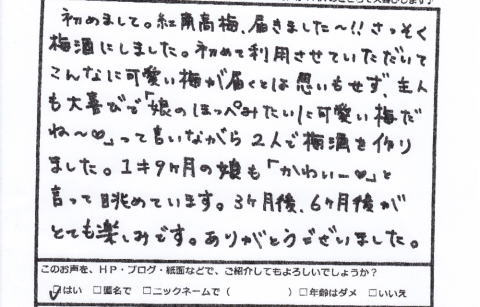 初めまして。紅南高梅、届きました〜!!さっそく
梅酒にしました。初めて利用させていただいて
こんなに可愛い梅が届くとは思いもせず、主人
も大喜びで「娘のほっぺみたいに可愛い梅だ
ね〜♡」って言いながら2人で梅酒を作り
ました。1才9ヶ月の娘も「かわいー♡」と
言って眺めています。3ヶ月後、6ヶ月後が
とても楽しみです。ありがとうございました。
このお声を、HP・ブログ・紙面などで、ご紹介してもよろしいでしょうか?
☑はい □匿名で □ニックネームで( ) □年齢はダメ □いいえ